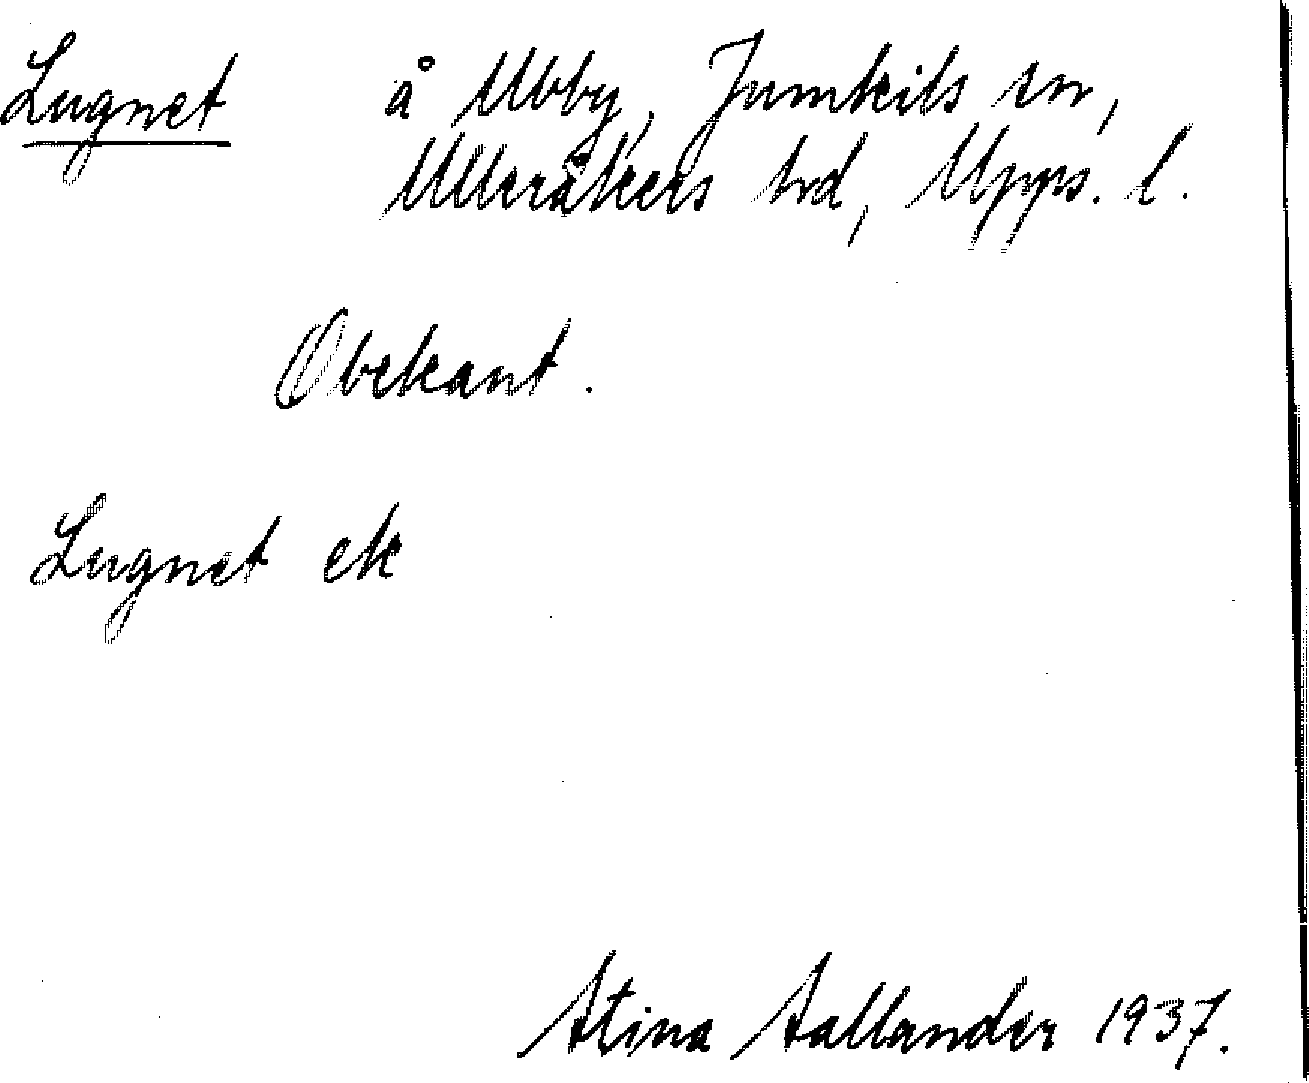 Lugnet å Ubby, Jumkils sn,
Ulleråkers hd, Upps. l.
Obekant.
Lugnet ek
Stina Sallander 1937.